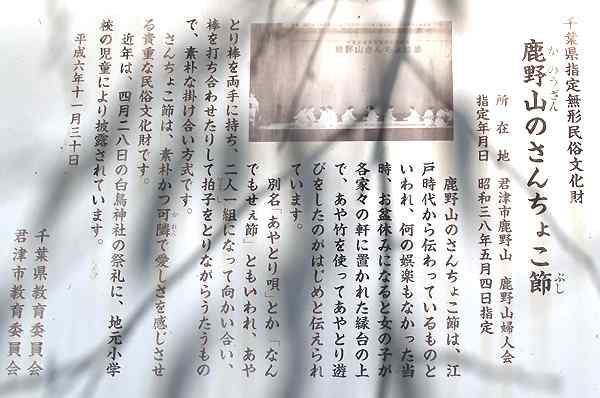 千葉県指定無形民俗文化財
鹿野山のさんちょこ節
かのうざん
ぶし
所在地 君津市鹿野山 鹿野山婦人会
指定年月日 昭和三八年五月四日指定
鹿野山のさんちょこ節は、江
戸時代から伝わっているものと
いわれ、何の娯楽もなかった当
時、お盆休みになると女の子が
各家々の軒に置かれた縁台の上
で、あや竹を使ってあやとり遊
びをしたのがはじめと伝えられ
ています。
別名「あやとり唄」とか「なん
でもせぇ節」ともいわれ、あや
とり棒を両手に持ち、二人一組になって向かい合い、
棒を打ち合わせたりして拍子をとりながらうたうもの
で、素朴な掛け合い方式です。
さんちょこ節は、素朴かつ可隣で愛しさを感じさせ
かれん
る貴重な民俗文化財です。
近年は、四月二八日の白鳥神社の祭礼に、地元小学
校の児童により披露されています。
平成六年十一月三十日
千葉県教育委員会
君津市教育委員会